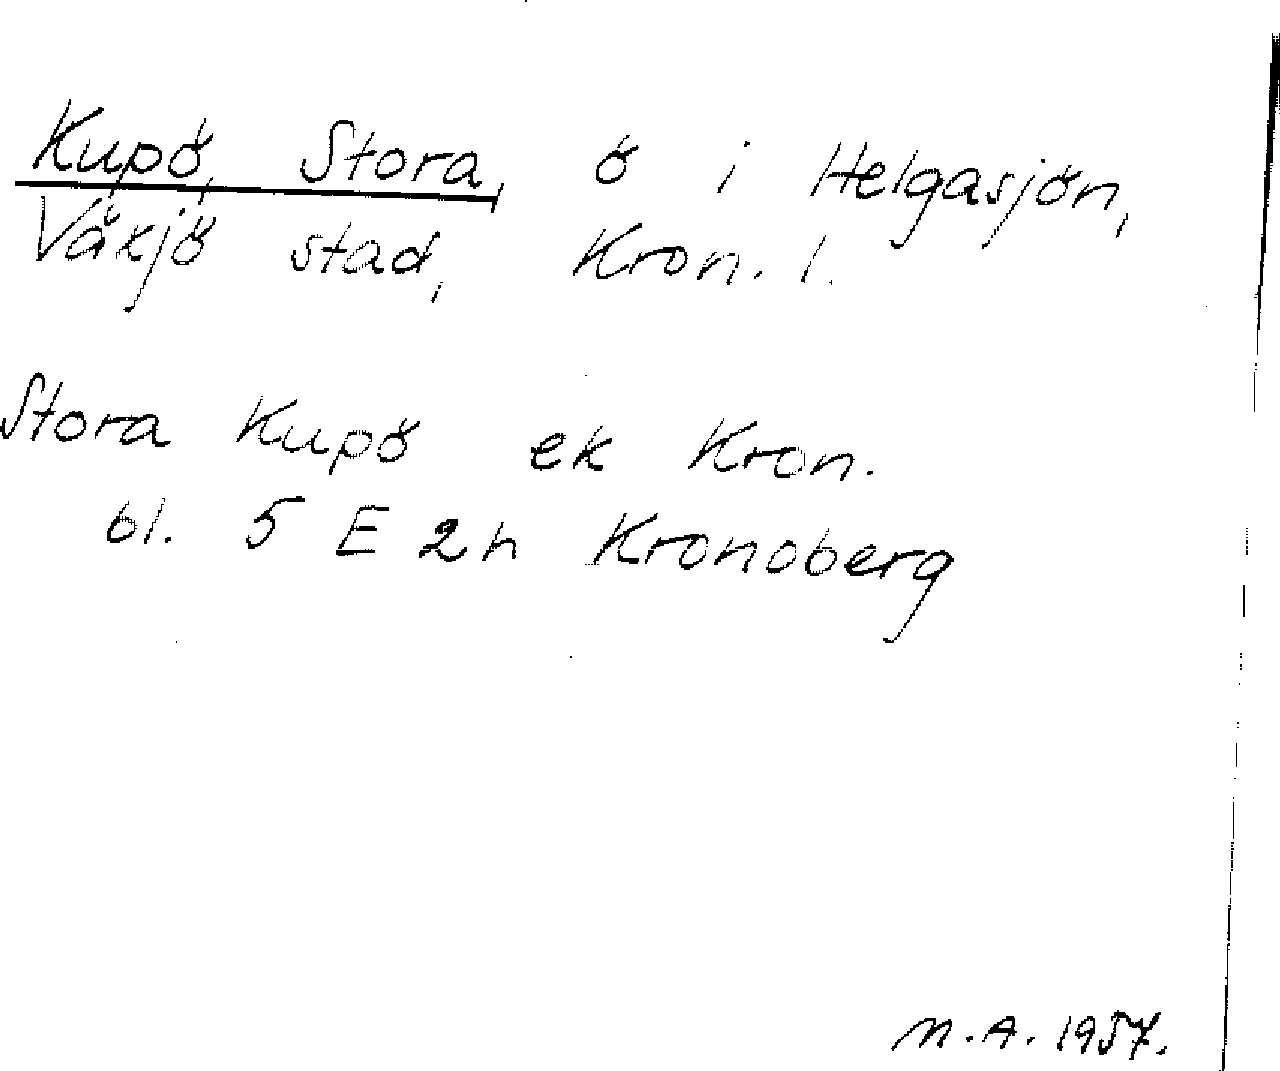 Kupö, Stora, ö i Helgasjön,
Växjö stad, Kron. l.
Stora Kupö ek Kron.
bl. 5 E 2h Kronoberg
M.A. 1957.